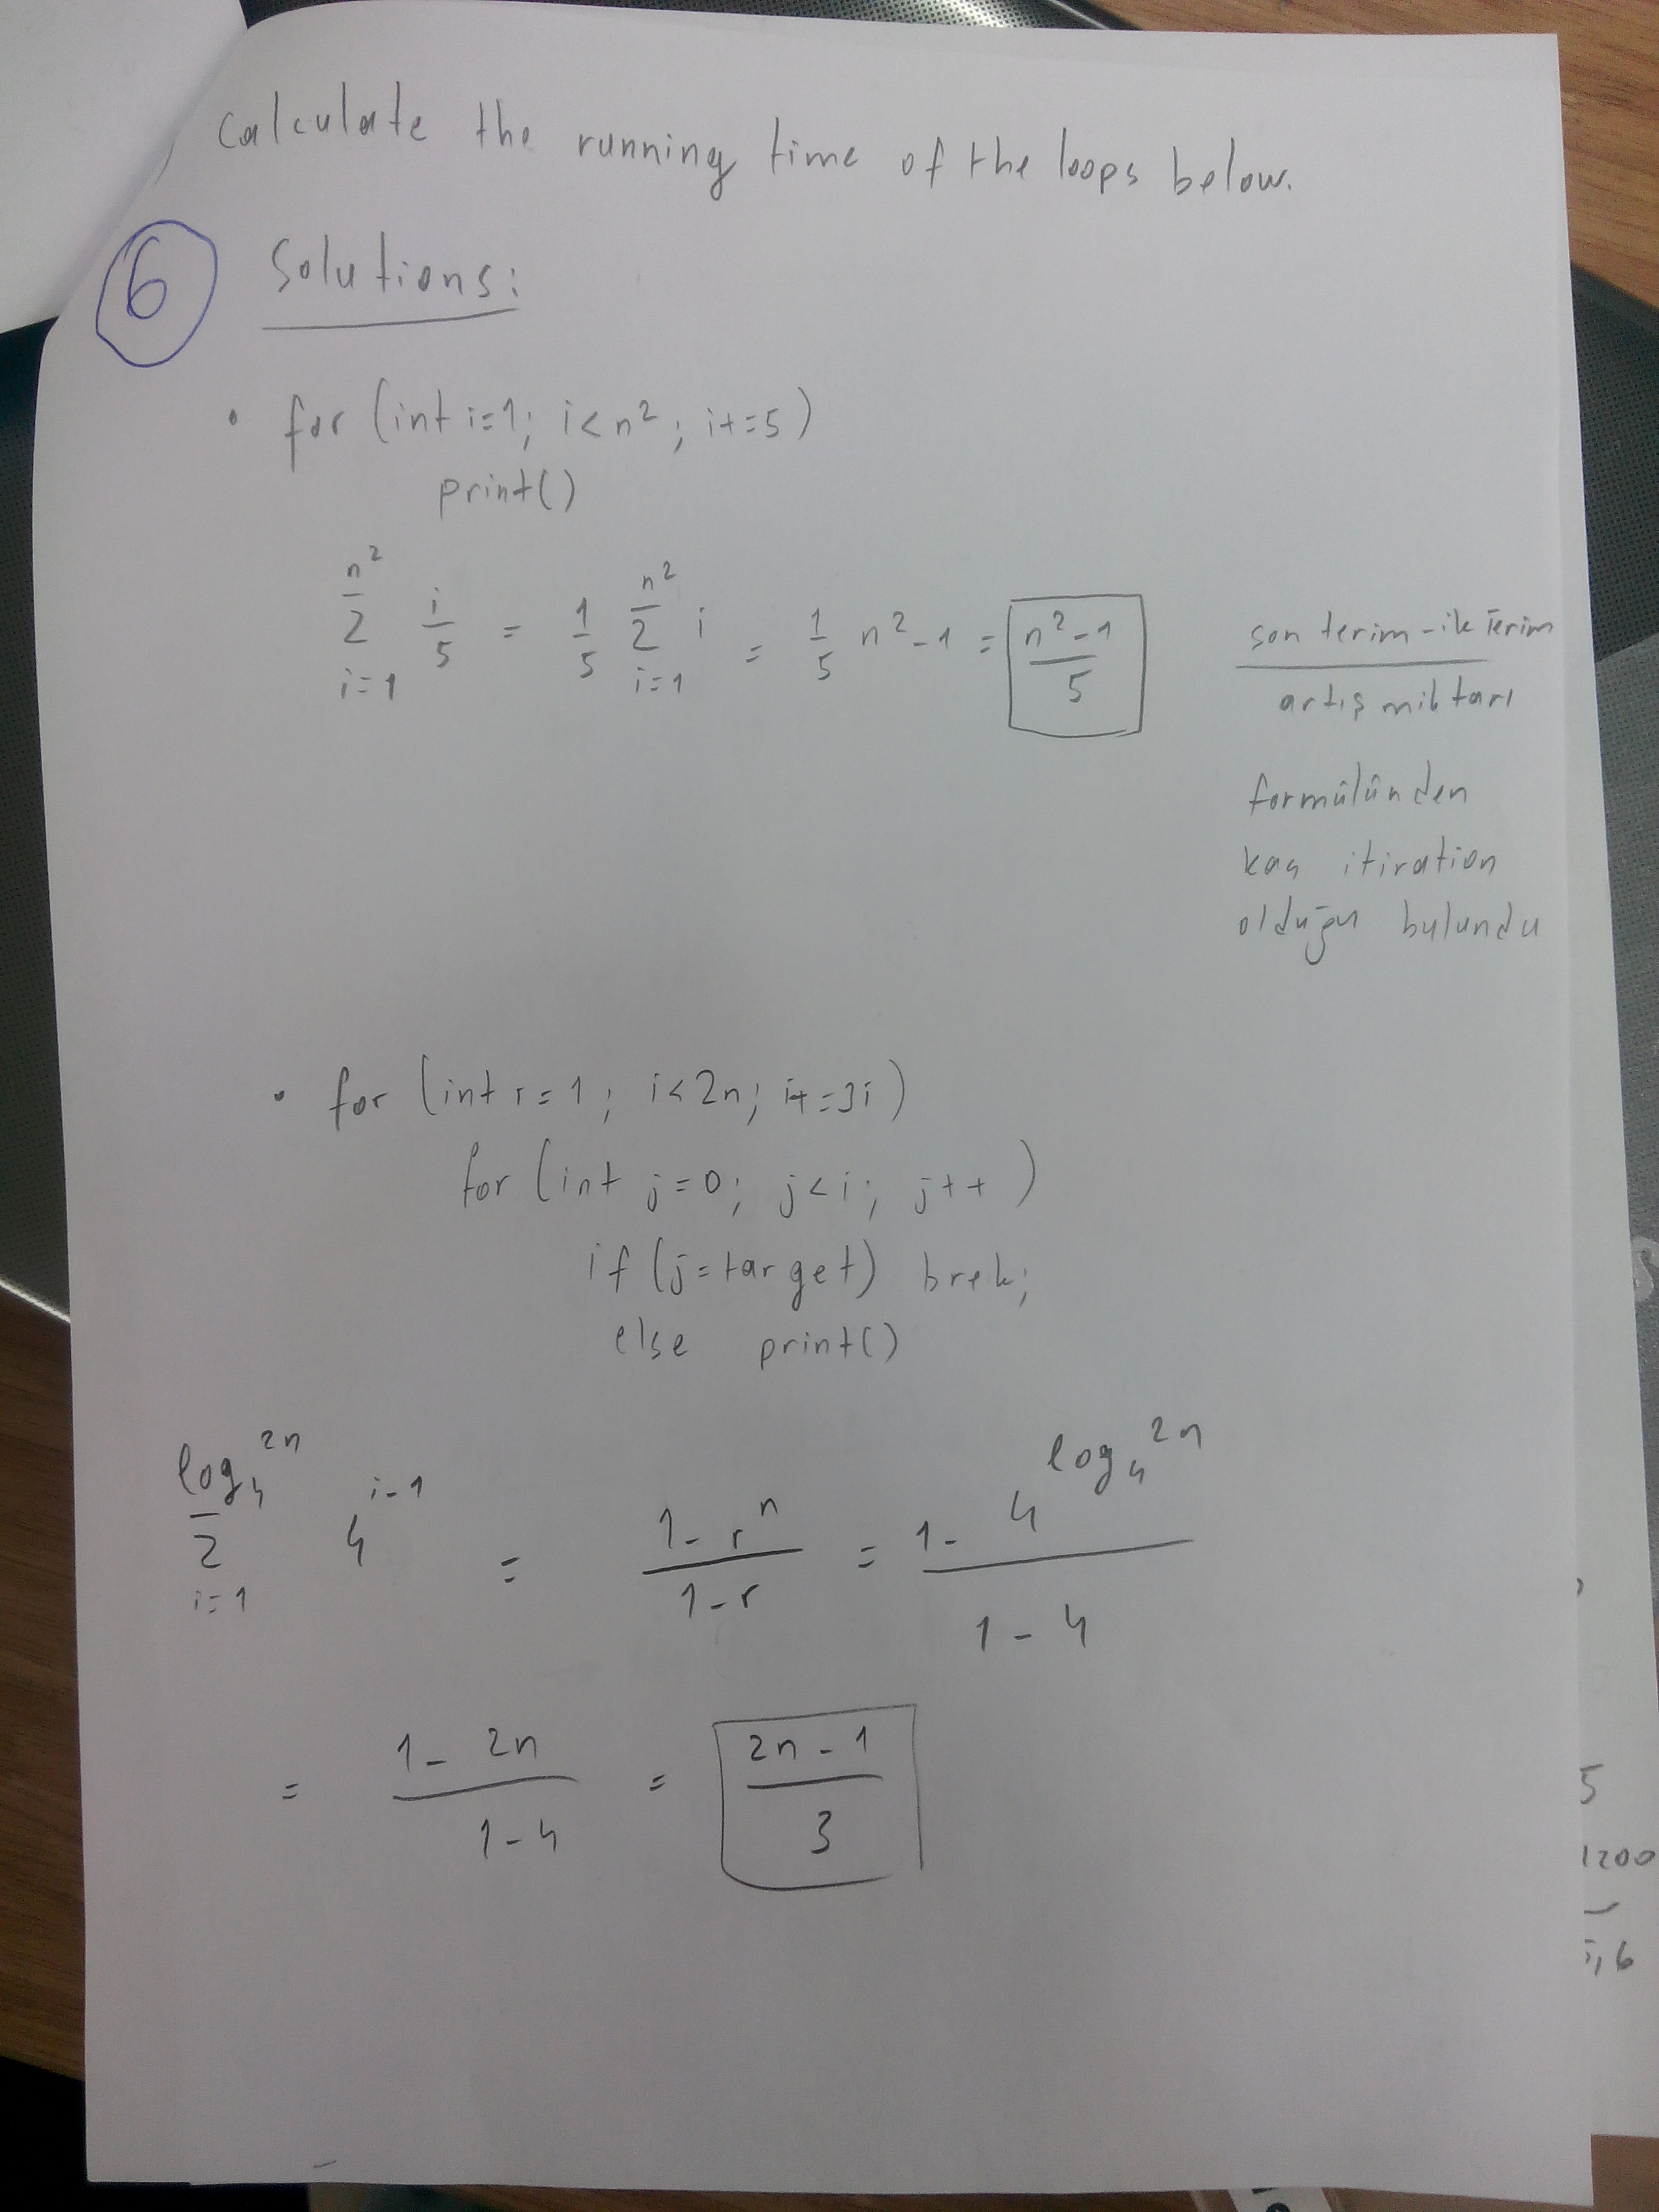 Calculate the running time of the loops below.
6 Solutions:
• for (int i=1; i<n²; i+=5)
print()
n² ∑ i=1 i/5 = 1/5 n² ∑ i=1 i = 1/5 n²-1 = n²-1/5
son terim - ilk terim
artış miktarı
formülünden
kaç itiration
olduğu bulundu
• for (int i=1; i<2n; i+=3i)
for (int j=0; j<i; j++)
if (j=target) brek;
else print()
log₄2n ∑ i=1 4^(i-1) = 1-r^n/1-r = 1-4^(log₄2n)/1-4
= 1-2n/1-4 = 2n-1/3
5
1200